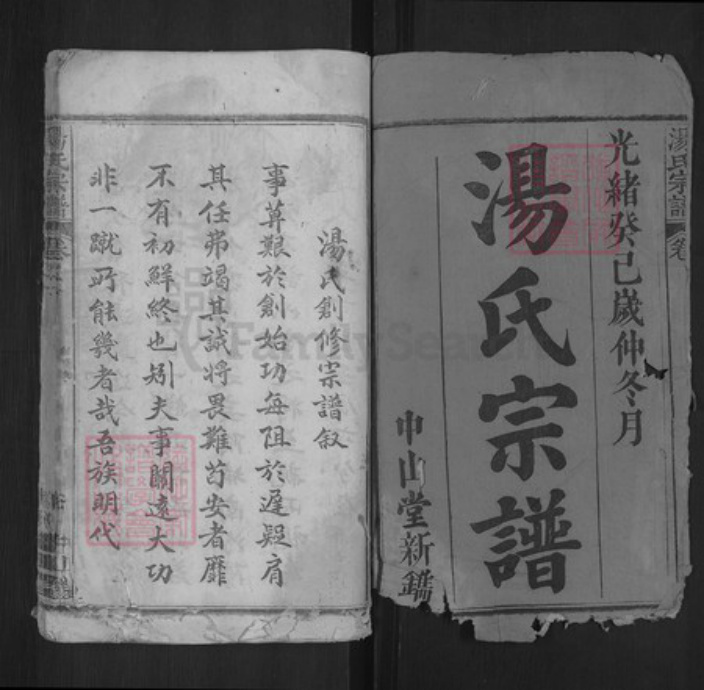 湯氏宗譜 卷
光緒癸巳歲仲冬月
湯氏宗譜
中山堂新鐫
湯氏創修宗譜叙
事莫艱於創始功每阻於遲疑肩
其任弗竭其誠將畏難苟安者靡
不有初鮮終也矧夫事關遠大功
非一蹴所能幾者哉吾族明代
湯氏宗譜
FamilySearch